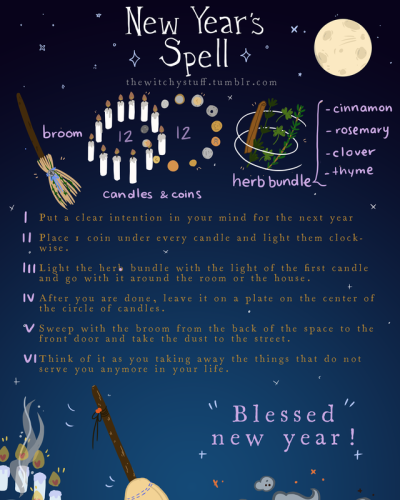 New Year's
Spell
thewitchystuff.tumblr.com
broom
12
12
candles & coins
herb bundle
- cinnamon
- rosemary
- clover
- thyme
I Put a clear intention in your mind for the next year
II Place 1 coin under every candle and light them clock-
wise.
III Light the herb bundle with the light of the first candle
and go with it around the room or the house.
IV After you are done, leave it on a plate on the center of
the circle of candles.
V Sweep with the broom from the back of the space to the
front door and take the dust to the street.
VI Think of it as you taking away the things that do not
serve you anymore in your life.
"Blessed"
new year!